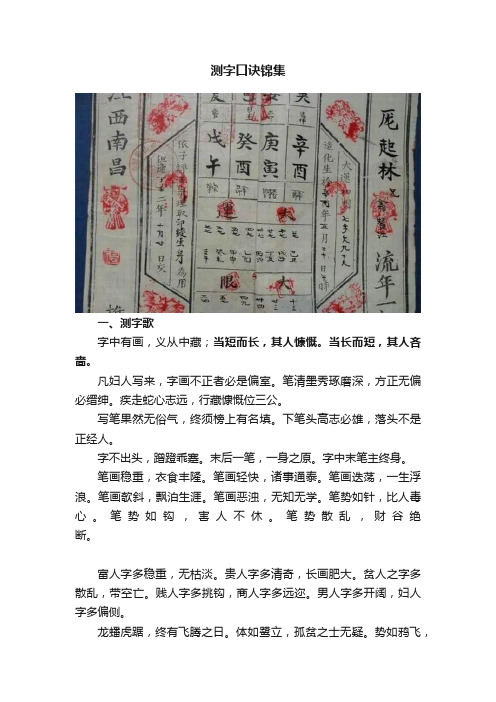 测字口诀锦集
江西南昌
戊 癸 庚 辛
午 酉 寅 酉
運 大
限 大
厖起林
流年一
一、测字歌
字中有画，义从中藏；当短而长，其人慷慨。当长而短，其人吝
啬。
凡妇人写来，字画不正者必是偏室。笔清墨秀琢磨深，方正无偏
必缙绅。疾走蛇心志远，行藏慷慨位三公。
写笔果然无俗气，终须榜上有名填。下笔头高志必雄，落头不是
正经人。
字不出头，蹭蹬乖塞。末后一笔，一身之原。字中末笔主终身。
笔画稳重，衣食丰隆。笔画轻快，诸事通泰。笔画迭荡，一生浮
浪。笔画欹斜，飘泊生涯。笔画恶浊，无知无学。笔势如针，比人毒
心。笔势如钩，害人不休。笔势散乱，财谷绝
断。
富人字多稳重，无枯淡。贵人字多清奇，长画肥大。贫人之字多
散乱，带空亡。贱人字多挑钩，商人字多远迩。男人字多开阔，妇人
字多偏侧。
龙蟠虎踞，终有飞腾之日。体如鹭立，孤贫之士无疑。势如鸦飞，